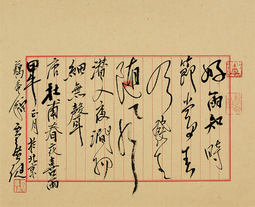 好雨知時
節當春
乃發生
隨風
潛入夜潤物
細無聲
唐杜甫春夜喜雨
甲午正月於北京